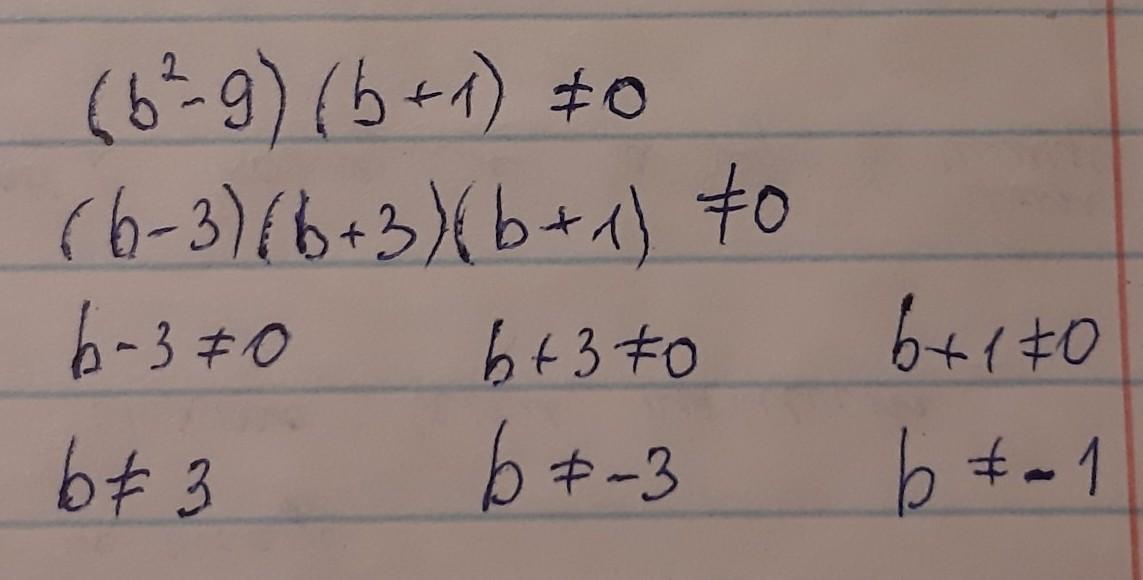 (b²-9)(b+1) ≠0
(b-3)(b+3)(b+1) ≠0
b-3≠0 b+3≠0 b+1≠0
b≠3 b≠-3 b≠-1